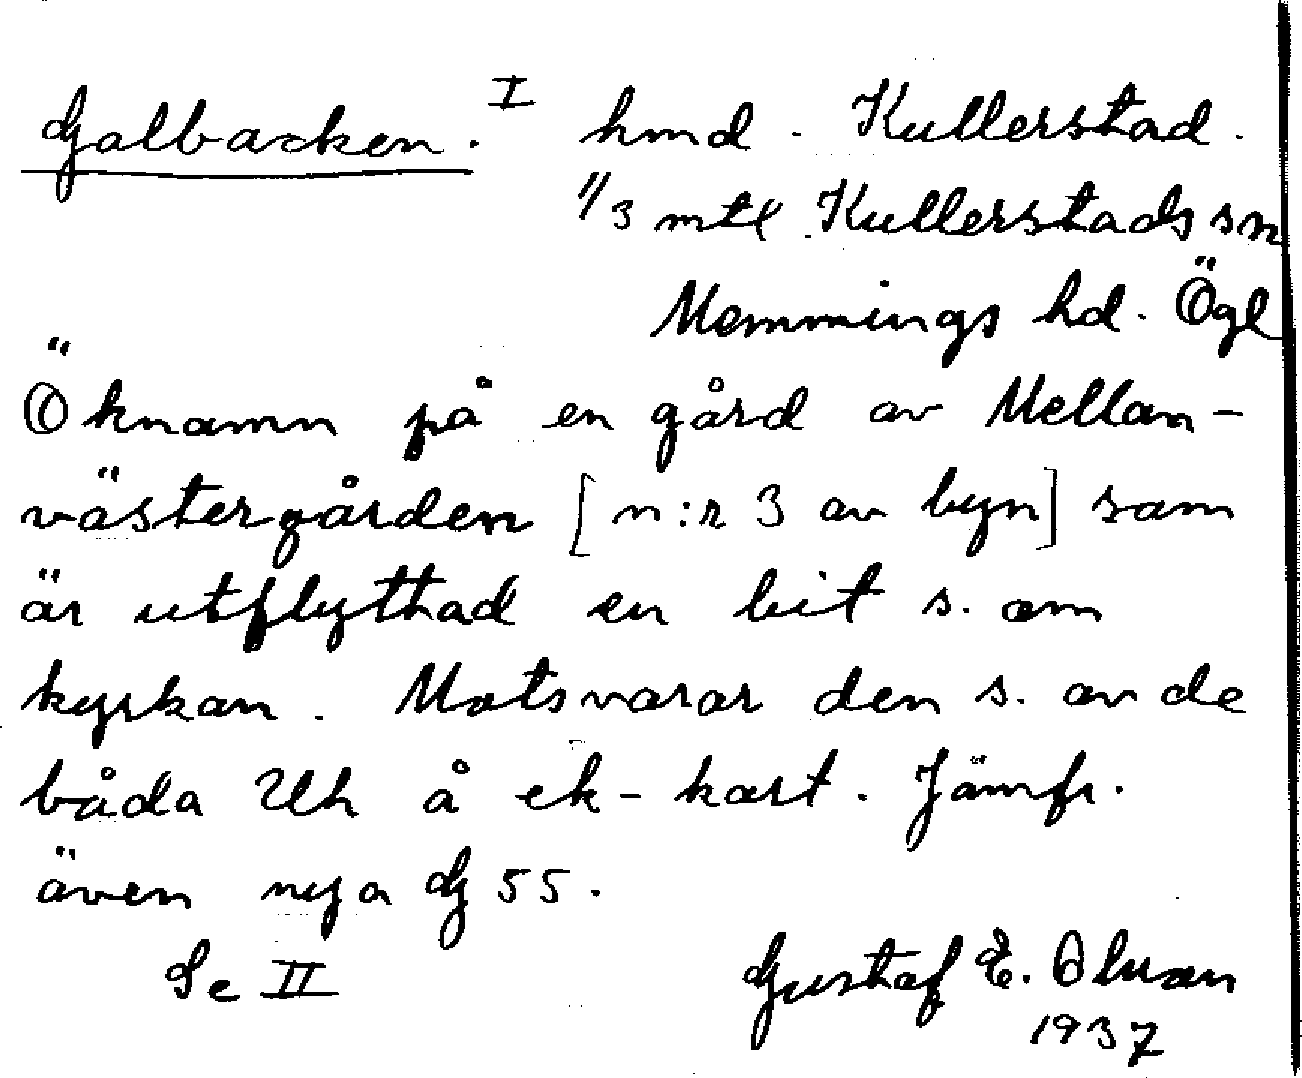 Galbacken. I hmd. Kullerstad.
1/3 mtl Kullerstads sn
Memmings hd. Ögl
Öknamn på en gård av Mellan-
västergården [n:r 3 av byn] som
är utflyttad en bit s. om
kyrkan. Motsvarar den s. av de
båda Uh å ek-kart. Jämfr.
även nya G 55.
Se II Gustaf E. Olsson
1937